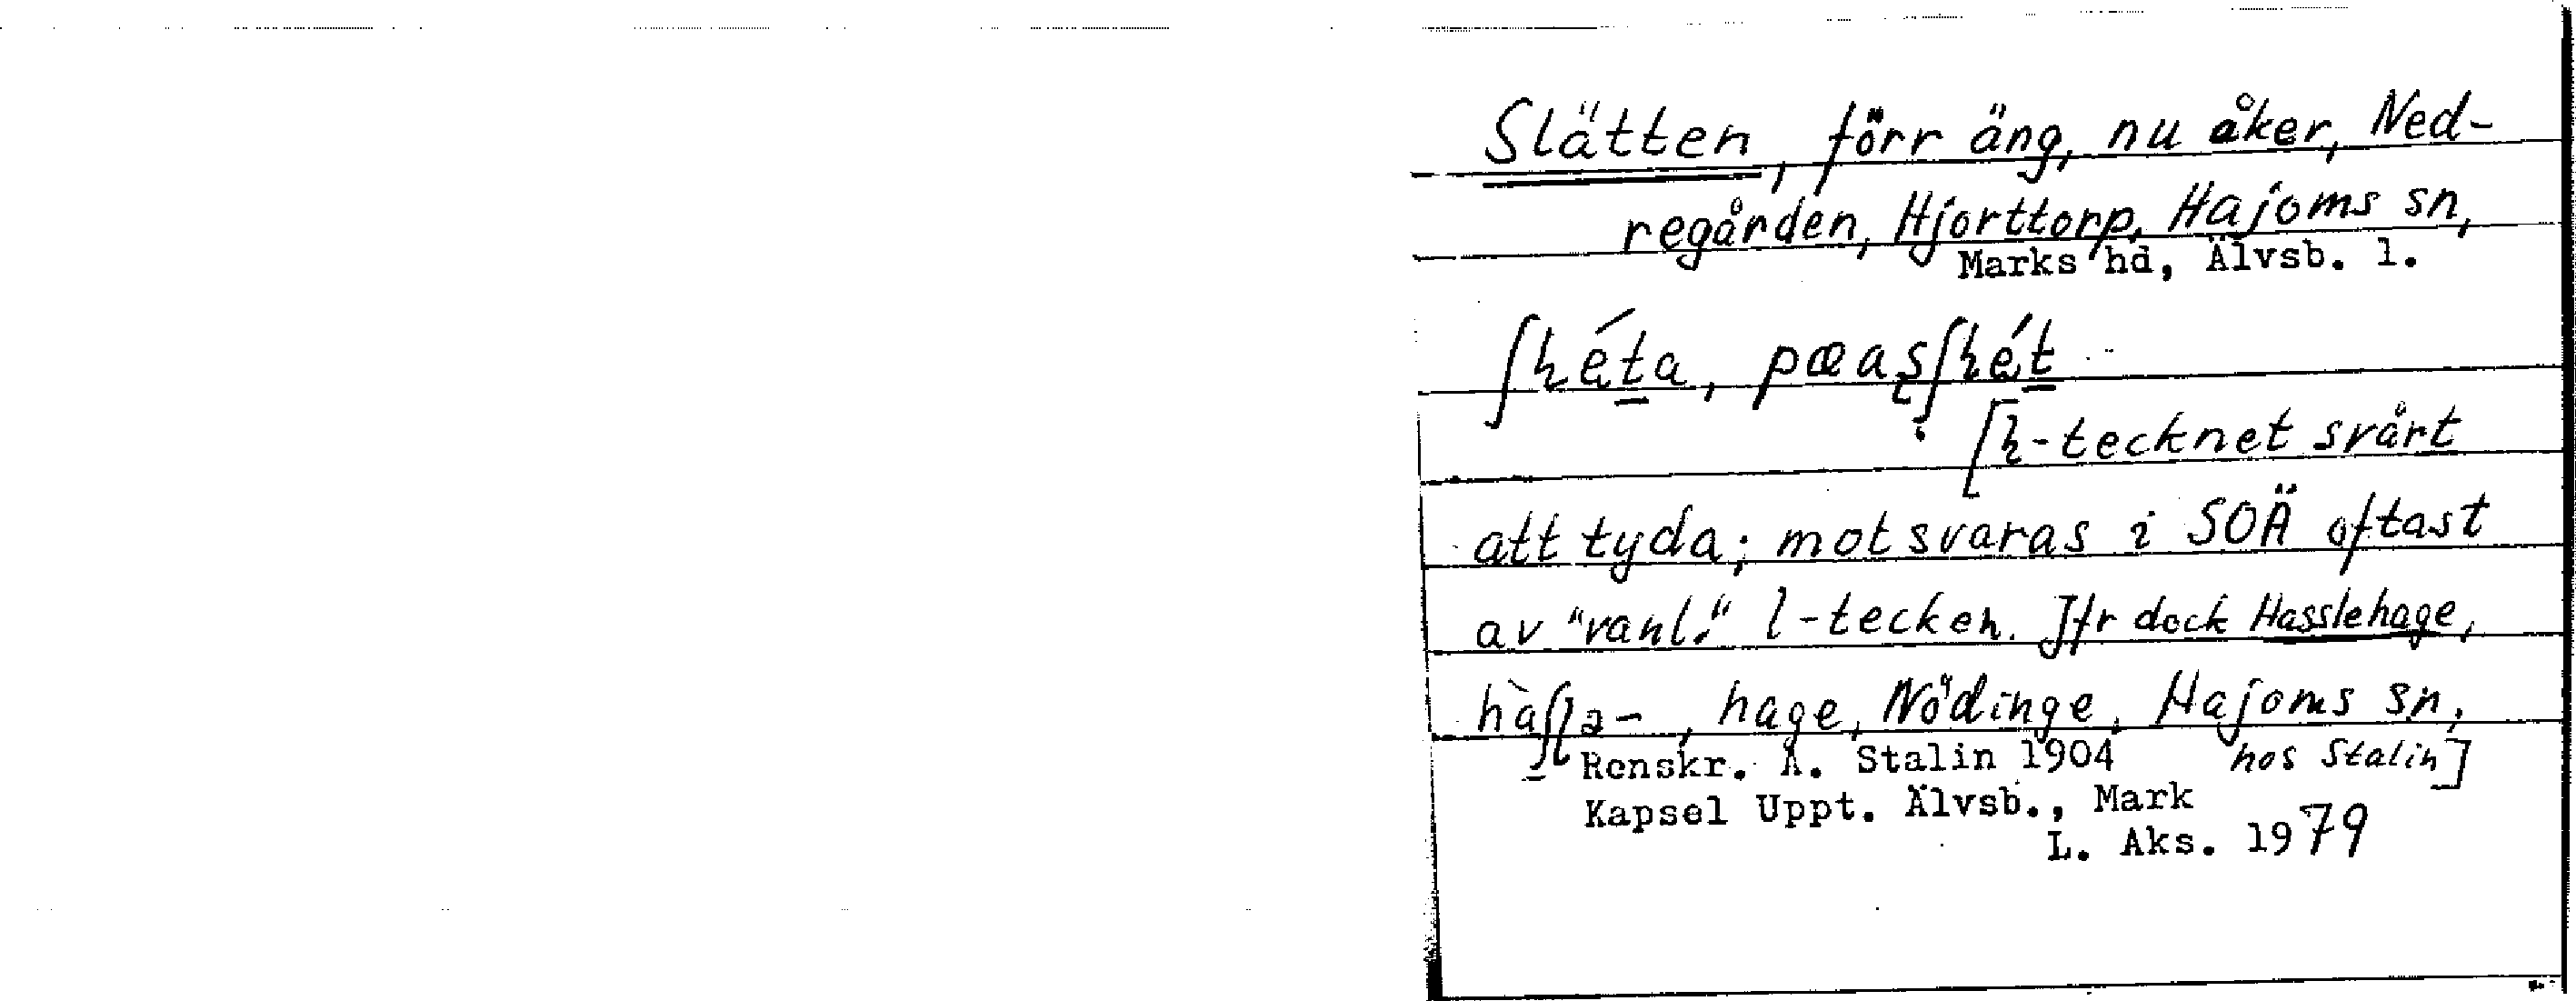 Slätten, förr äng, nu åker, Ned-
regården, Hjorttorp, Hajoms sn,
Marks hd, Älvsb. l.
ʃɦéta, pæasʃɦét
[ɦ-tecknet svårt
att tyda; motsvaras i SOÄ oftast
av "vanl." l-tecken. Jfr dock Hasslehage,
hàʃlə-, hage, Nödinge, Hajoms sn,
hos Stalin]
Renskr. A. Stalin 1904
Kapsel Uppt. Älvsb., Mark
L. Aks. 1979